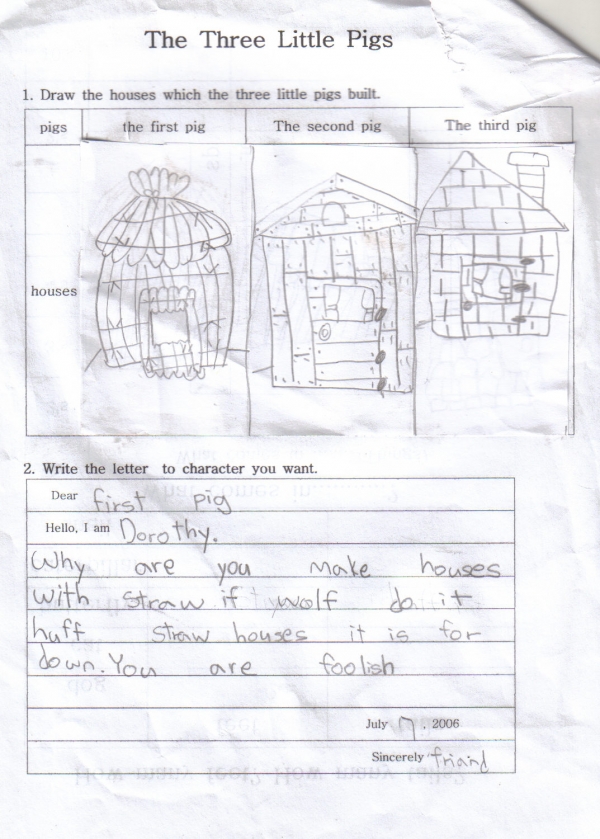 The Three Little Pigs
1. Draw the houses which the three little pigs built.
pigs the first pig The second pig The third pig
houses
2. Write the letter to character you want.
Dear first pig
Hello, I am Dorothy.
Why are you make houses
with straw if wolf do it
huff straw houses it is for
down. You are foolish
July 17, 2006
Sincerely friand